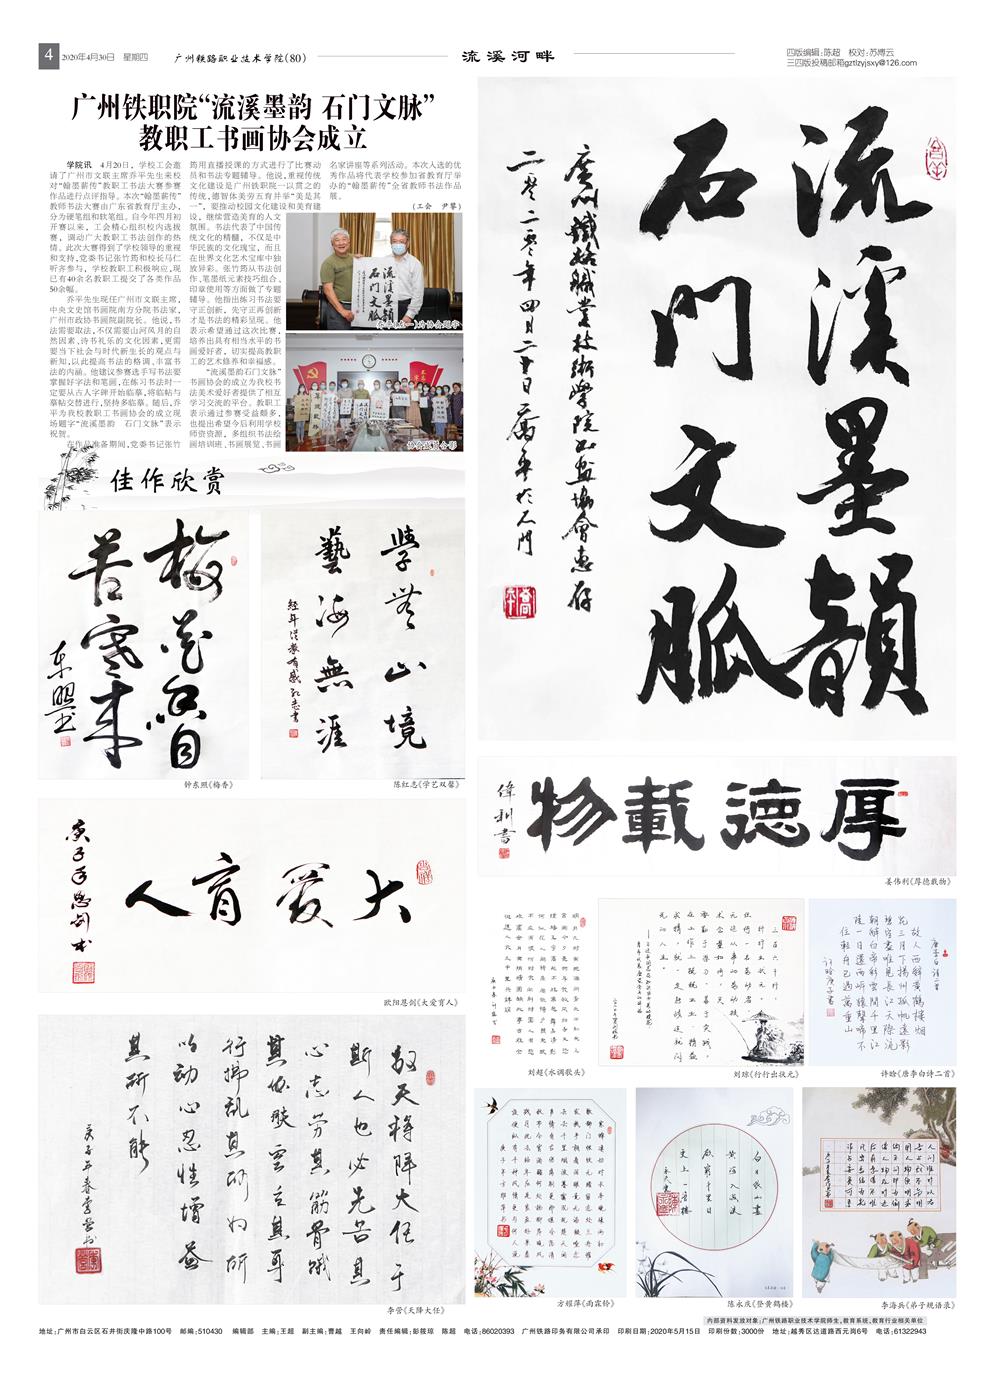 4
2020年4月30日 星期四
广州铁路职业技术学院(80)
流溪河畔
四版编辑:陈超 校对:苏博云
三四版投稿邮箱gztlzyjsxy@126.com
广州铁职院“流溪墨韵 石门文脉”
教职工书画协会成立
学院讯 4月20日，学校工会邀
请了广州市文联主席乔平先生来校
对“翰墨薪传”教职工书法大赛参赛
作品进行点评指导。本次“翰墨薪传”
教师书法大赛由广东省教育厅主办，
分为硬笔组和软笔组。自今年四月初
开赛以来，工会精心组织校内选拔
赛，调动广大教职工书法创作的热
情。此次大赛得到了学校领导的重视
和支持,党委书记张竹筠和校长马仁
听齐参与，学校教职工积极响应,现
已有40余名教职工提交了各类作品
50余幅。
乔平先生现任广州市文联主席，
中央文史馆书画院南方分院书法家，
广州市政协书画院副院长。他说，书
法需要取法,不仅需要山河风月的自
然因素、诗书礼乐的文化因素，更需
要当下社会与时代新生长的观点与
新知，以此提高书法的格调、丰富书
法的内涵。他建议参赛选手写书法要
掌握好字法和笔画,在练习书法时一
定要从古人字碑开始临摹,将临帖与
摹帖交替进行,坚持多临摹。随后,乔
平为我校教职工书画协会的成立现
场题字“流溪墨韵 石门文脉”表示
祝贺。
在作品准备期间,党委书记张竹
筠用直播授课的方式进行了比赛动
员和书法专题辅导。他说,重视传统
文化建设是广州铁职院一以贯之的
传统,德智体美劳五育并举“美是其
一”,要推动校园文化建设和美育建
设，继续营造美育的人文
氛围。书法代表了中国传
统文化的精髓，不仅是中
华民族的文化瑰宝，而且
在世界文化艺术宝库中独
放异彩。张竹筠从书法创
作、笔墨纸元素技巧组合、
印章使用等方面做了专题
辅导。他指出练习书法要
守正创新，先守正再创新
才是书法的精彩呈现。他
表示希望通过这次比赛，
培养出具有相当水平的书
画爱好者，切实提高教职
工的艺术修养和幸福感。
“流溪墨韵石门文脉”
书画协会的成立为我校书
法美术爱好者提供了相互
学习交流的平台。教职工
表示通过参赛受益颇多，
也提出希望今后利用学校
师资资源，多组织书法绘
画培训班、书画展览、书画
名家讲座等系列活动。本次入选的优
秀作品将代表学校参加省教育厅举
办的“翰墨薪传”全省教师书法作品
展。
(工会 尹擎)
协会成员合影
流溪墨韻
石门文脈
广州鐵路職業技術學院书畫協會惠存
二零二零年四月二十日喬平於石門
佳作欣赏
梅花香自
苦寒来
东照书
钟东照《梅香》
學無止境
藝海無涯
经年从教有感 红志书
陈红志《学艺双馨》
厚德載物
偉利書
姜伟利《厚德载物》
大爱育人
庚子年恩剑书
欧阳恩剑《大爱育人》
故天将降大任于
斯人也必先苦其
心志劳其筋骨饿
其体肤空乏其身
行拂乱其所为所
以动心忍性增益
其所不能
庚子年春李营书
李营《天降大任》
刘超《水调歌头》
三百六十行，
行行出状元。
刘琼《行行出状元》
唐李白诗二首
故人西辞黄鹤楼烟
花三月下扬州孤帆远影
碧空尽唯见长江天际流
朝辞白帝彩云间千里江
陵一日还两岸猿声啼不
住轻舟已过万重山
许晗《唐李白诗二首》
方耀萍《雨霖铃》
白日依山尽
黄河入海流
欲穷千里目
更上一层楼
陈永庆《登黄鹤楼》
李海兵《弟子规语录》
内部资料发放对象:广州铁路职业技术学院师生,教育系统、教育行业相关单位
地址:广州市白云区石井街庆隆中路100号 邮编:510430 编辑部 主编:王超 副主编:曹越 王向岭 责任编辑:彭筱琼 陈超 电话:86020393 广州铁路印务有限公司承印 印刷日期:2020年5月15日 印刷份数:3000份 地址:越秀区达道路西元岗6号 电话:61322943